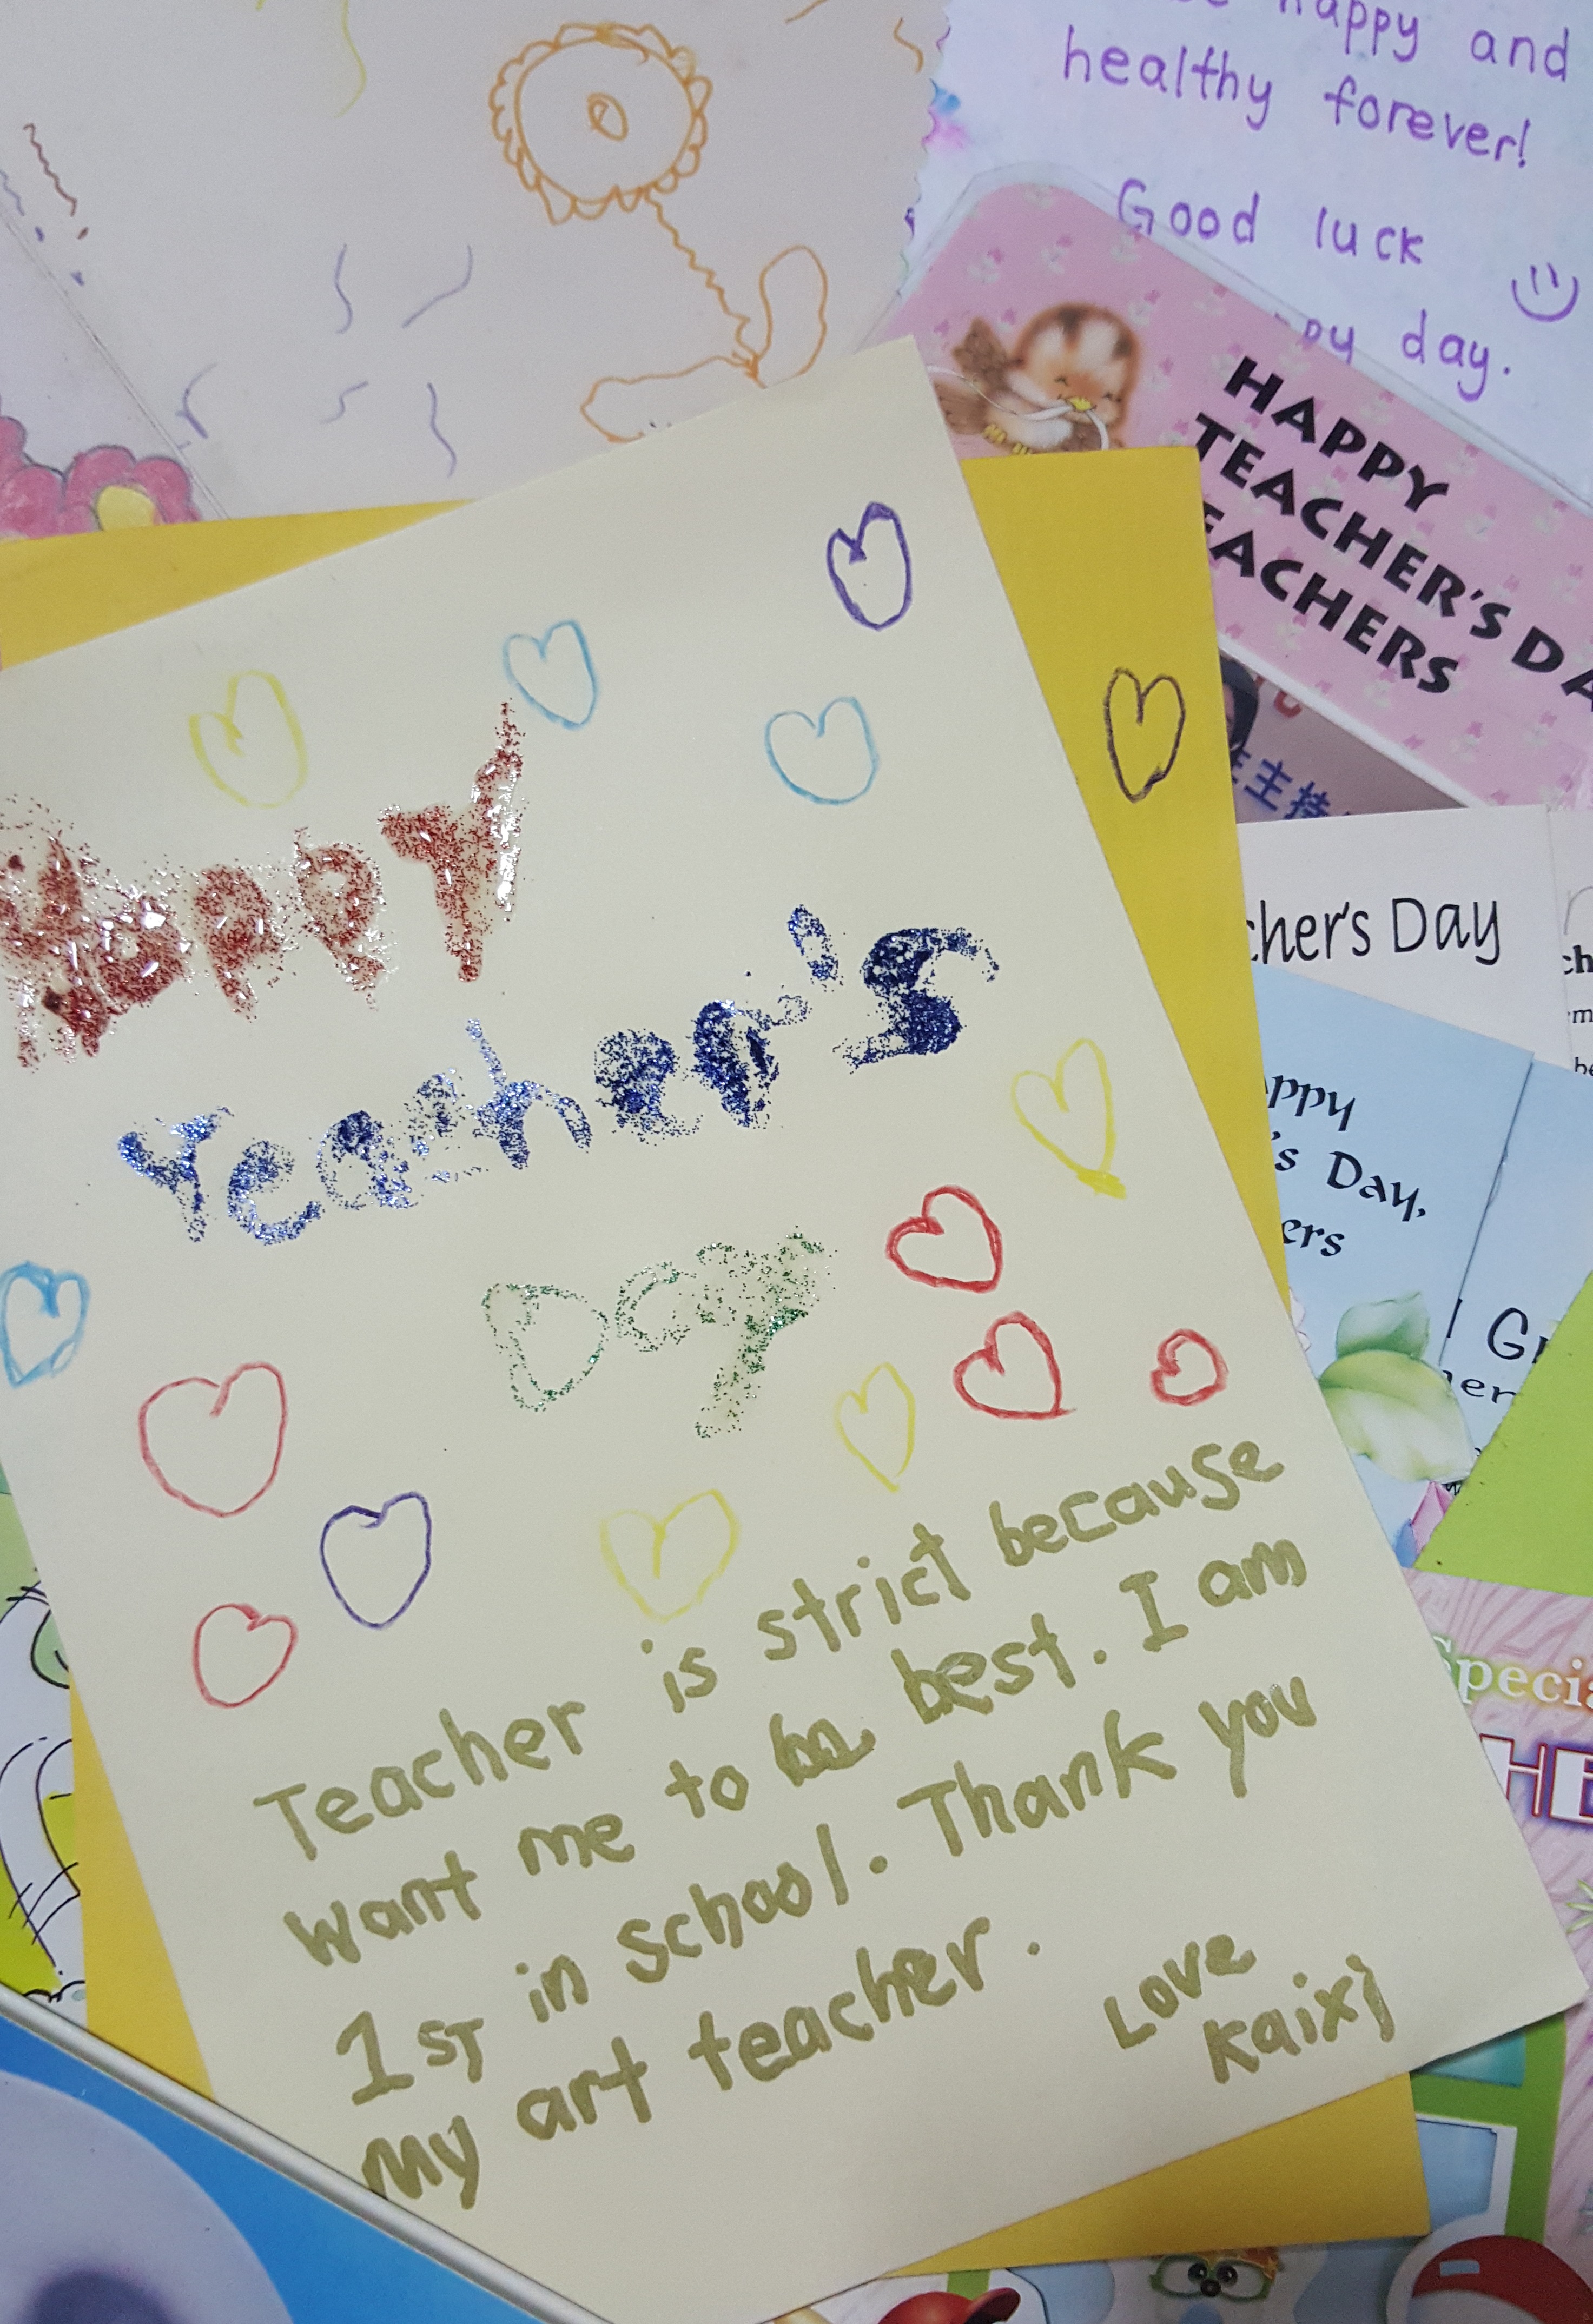 happy and
healthy forever!
Good luck
day.
HAPPY
TEACHER'S DA
TEACHERS
主持
cher's Day
ppy
's Day,
ers
Happy
Teacher's
Day
Teacher is strict because
want me to be best. I am
1st in school. Thank you
My art teacher.
Love
Kaixj
Specia